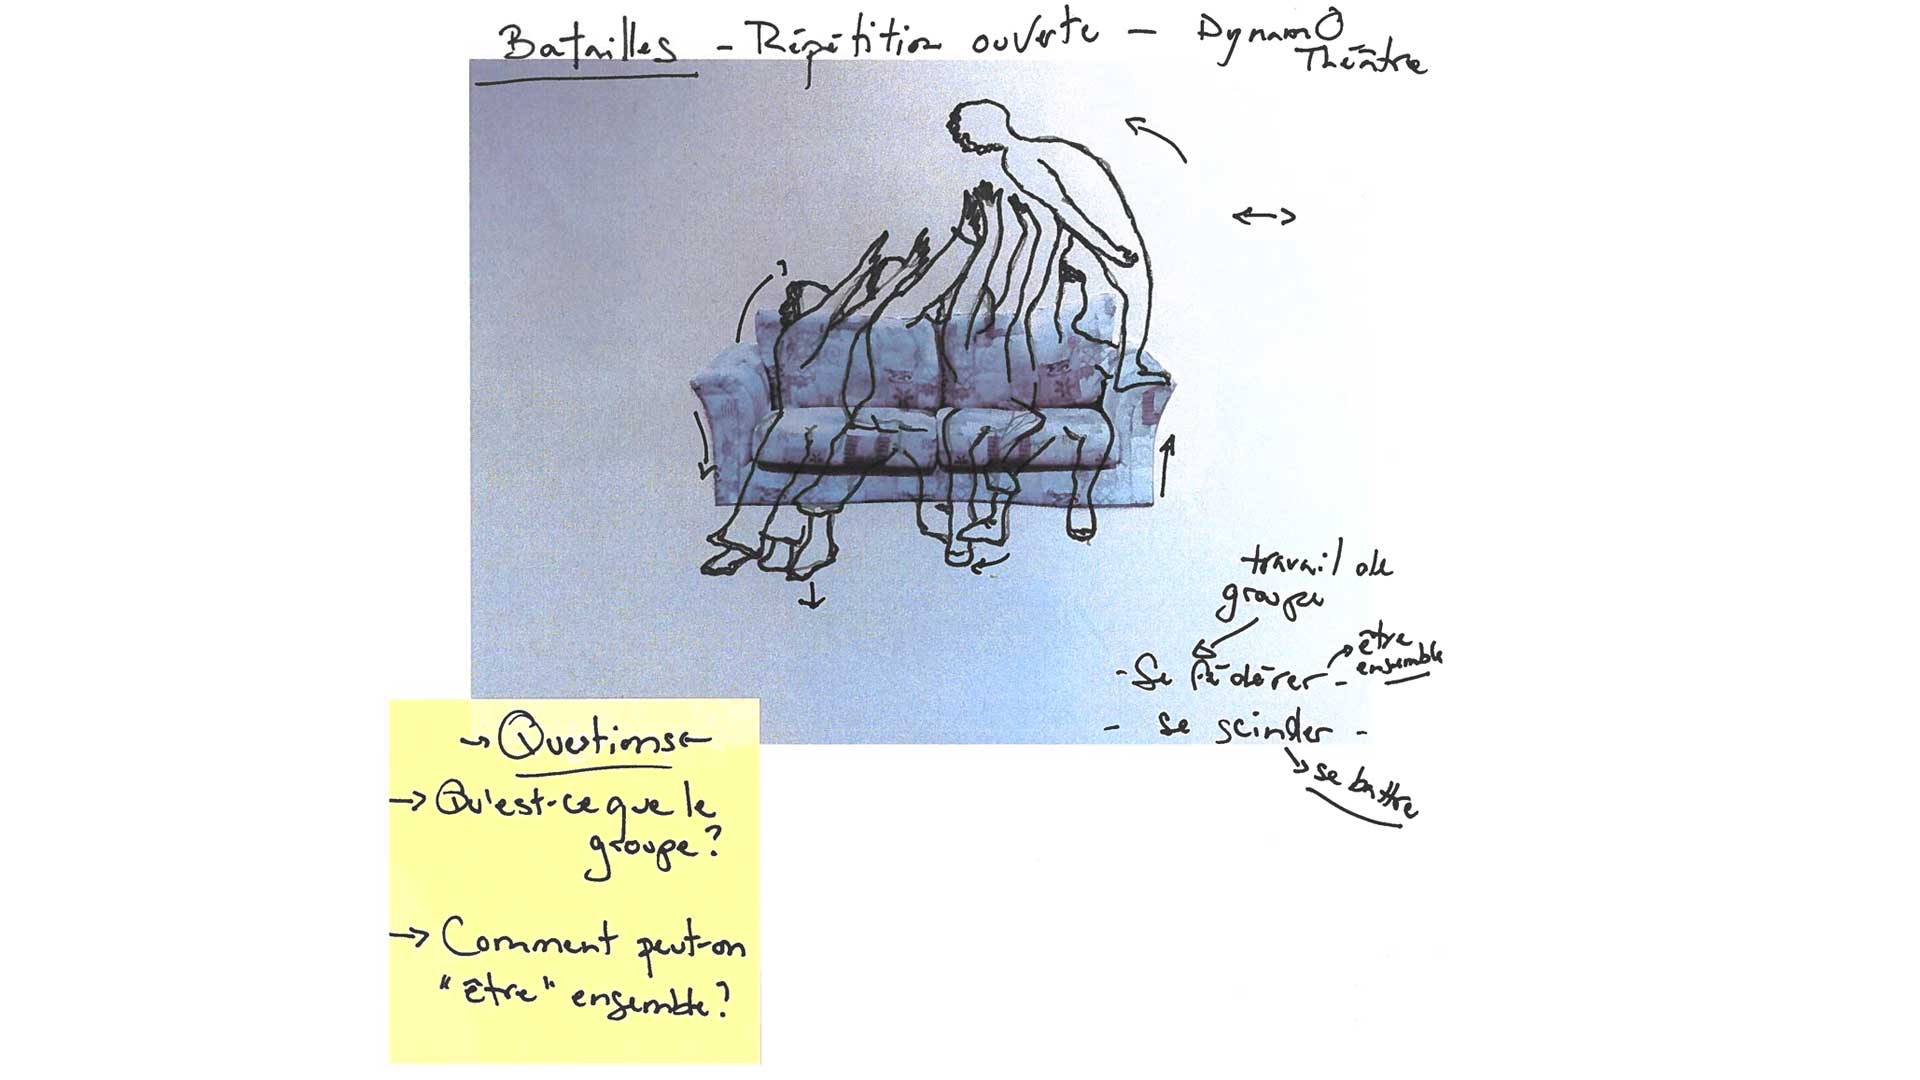 Batailles - Répétition ouverte - DynamO
Théâtre
travail de
groupe
- Se fédérer -
être
ensemble
- se scinder -
se battre
Questions
Qu'est-ce que le
groupe ?
Comment peut-on
"être" ensemble ?